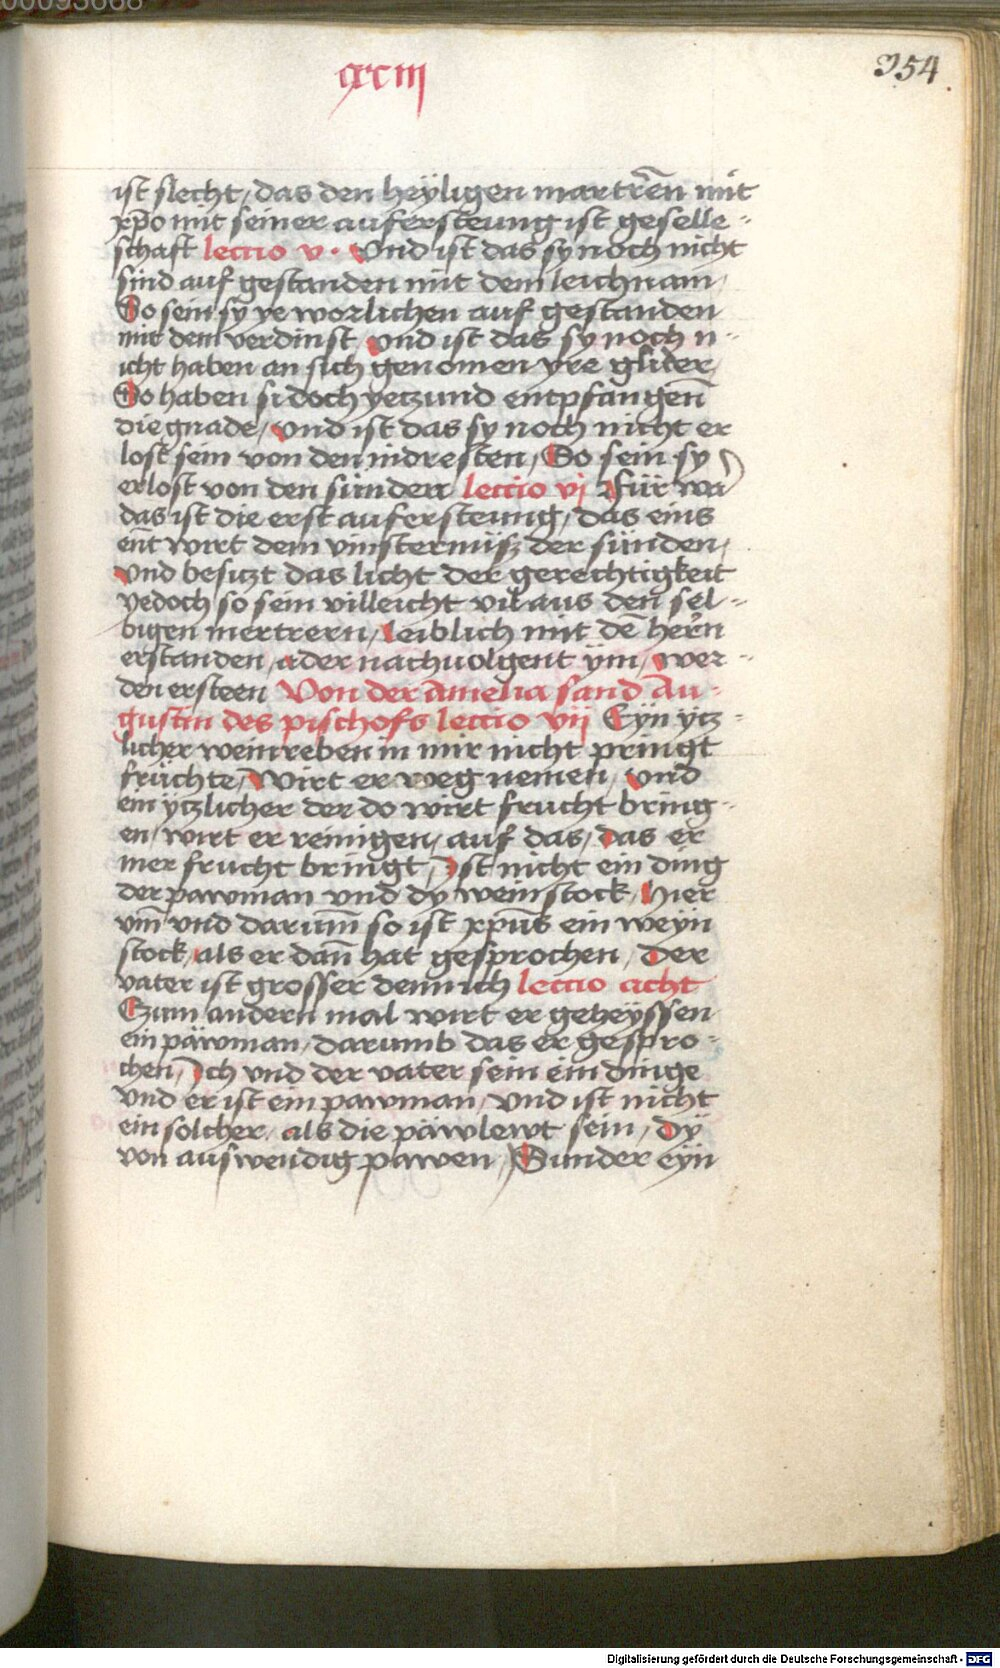 00095668
cxciii
354
ist slecht, das den heÿligen martrēn mit
xp̄o mit seiner aufersteung ist geselle-
schaft lectio v. Vnd ist das sy noch nicht
sind auf gestanden mit dem leichnam,
So sein sy ye worlichen auf gestanden
mit dem verdinst, vnd ist das sy noch n-
icht haben an sich genomen yre glider,
So haben si doch yetzund entpfangen̄
die gnade, vnd ist das sy noch nicht er
lost sein von den indresten, So sein sy
erlost von den sünden lectio vj Für wa
das ist die erst aufersteung, das eins
ent wirt dem vinsternüsz der sünden,
vnd besitzt das licht der gerechtigkeit
yedoch so sein villeicht vil aus den sel-
bigen mertrern, leiblich mit dē herrn
erstanden, ader nachuolgent ÿm, wer-
den ersteen Von der amelia sand Au-
gustin des pischofs lectio vij Eÿn ytz-
licher weinreben in mir nicht pringt
früchte, wirt er weg nemen, vnd
ein ÿtzlicher der do wirt frucht bring-
en, wirt er reinigen, auf das, das er
mer frucht bringt, Ist nicht ein ding
der pawman vnd dy weinstock, hier
vm̄ vnd darum̄ so ist xp̄us ein weÿn
stock, als er dan̄ hat gesprochen, Der
vater ist grosser denn ich lectio acht
Czum andern mal wirt er geheÿssen
ein päwman, darumb das er gespro-
chen, Ich vnd der vater sein ein dinge
vnd er ist ein pawman, vnd ist nicht
ein solcher, als die päwlewt sein, dÿ
von auswendig pawen, Sunder eÿn
Digitalisierung gefördert durch die Deutsche Forschungsgemeinschaft - DFG